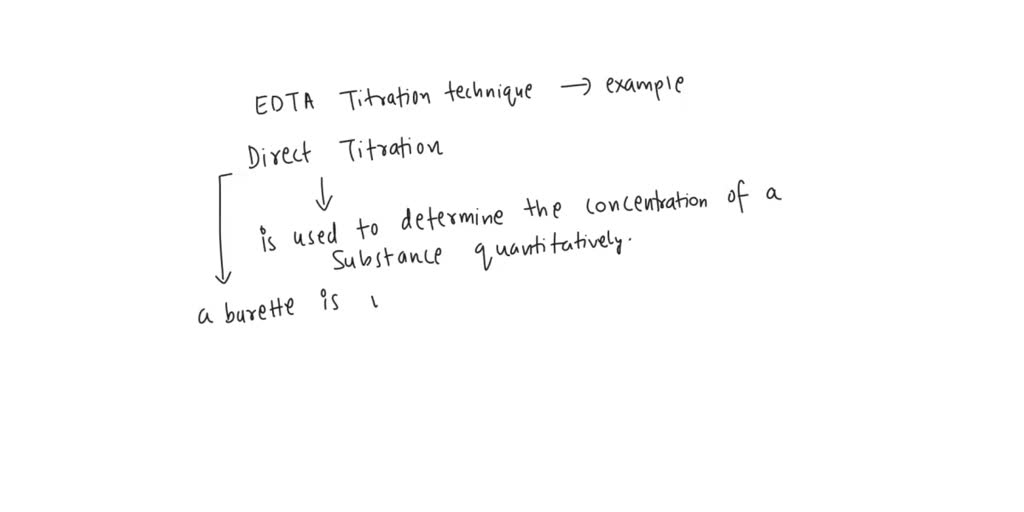 EDTA Titration technique → example
Direct Titration
is used to determine the concentration of a
substance quantitatively.
a burette is